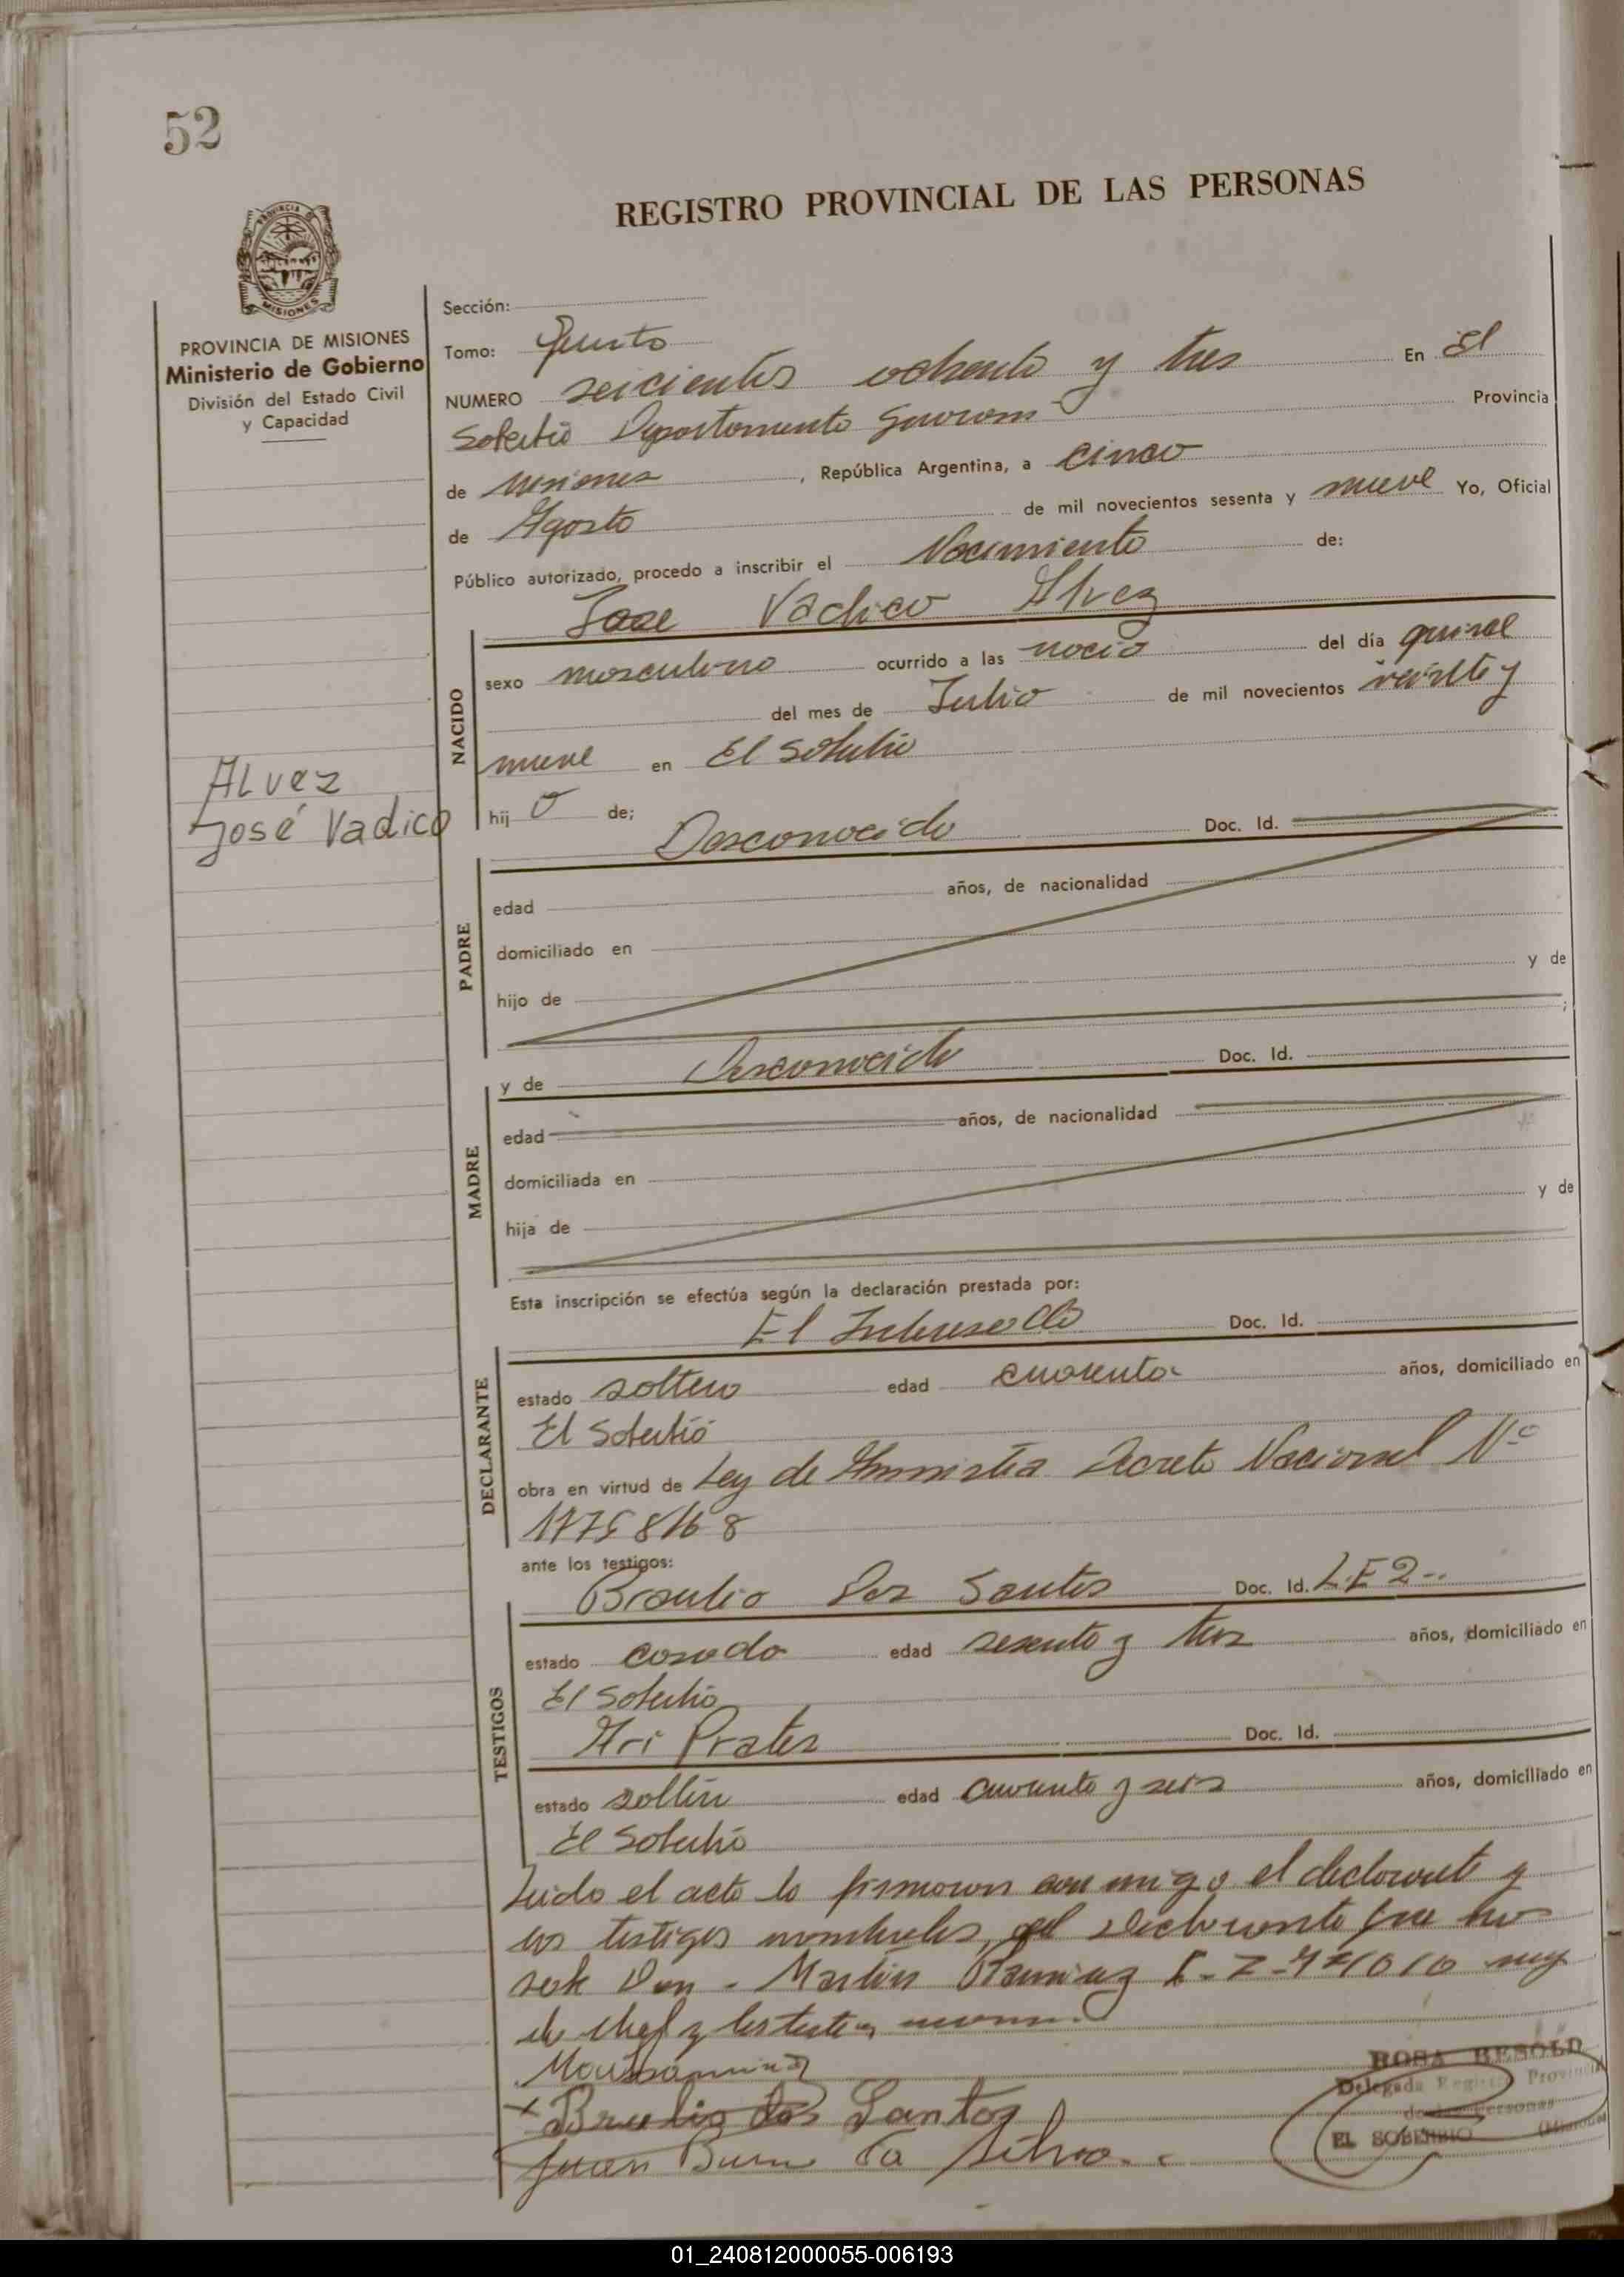 52
REGISTRO PROVINCIAL DE LAS PERSONAS
PROVINCIA DE MISIONES
Ministerio de Gobierno
División del Estado Civil
y Capacidad
Sección:
Tomo: Quinto
NUMERO seicientos ochenta y tres En El
Soberbio Departamento Guarani Provincia
de Misiones, República Argentina, a cinco
de Agosto de mil novecientos sesenta y nueve Yo, Oficial
Público autorizado, procedo a inscribir el Nacimiento de:
Jose Vadico Alvez
NACIDO
sexo masculino ocurrido a las nacio del día quince
del mes de Julio de mil novecientos veinte y
nueve en El Soberbio
hij o de;
Alvez
José Vadico
Desconocido Doc. Id.
PADRE
edad años, de nacionalidad
domiciliado en
hijo de y de
;
y de Desconocido Doc. Id.
MADRE
edad años, de nacionalidad
domiciliada en
hija de y de
Esta inscripción se efectúa según la declaración prestada por:
El Interesado Doc. Id.
DECLARANTE
estado soltero edad cuarenta años, domiciliado en
El Soberbio
obra en virtud de Ley de Amnistia Decreto Nacional Nº
ante los testigos:
Braulio Dos Santos Doc. Id. L.E 2--
TESTIGOS
estado casado edad sesenta y tres años, domiciliado en
El Soberbio
Ari Prates Doc. Id.
estado edad cuarenta y seis años, domiciliado en
El Soberbio
Leido el acta la firmaron conmigo el declarante y
los testigos nombrados, el declarante que no
Don - Martin Ramirez
de
Braulio dos Santos
Juan da Silva.
ROSA BESOLD
Delegada Registro Provincial
de las Personas
EL SOBERBIO (Misiones
01_240812000055-006193